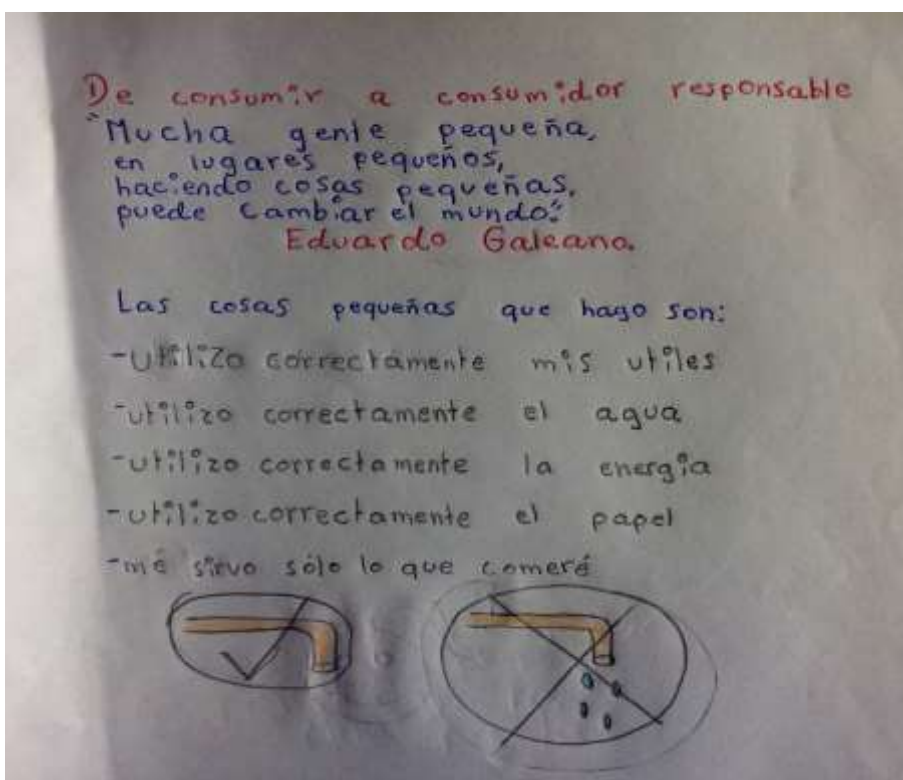 De consumir a consumidor responsable
"Mucha gente pequeña,
en lugares pequeños,
haciendo cosas pequeñas,
puede cambiar el mundo."
Eduardo Galeano.
Las cosas pequeñas que hago son:
-utilizo correctamente mis utiles
-utilizo correctamente el agua
-utilizo correctamente la energía
-utilizo correctamente el papel
-me sirvo sólo lo que comeré